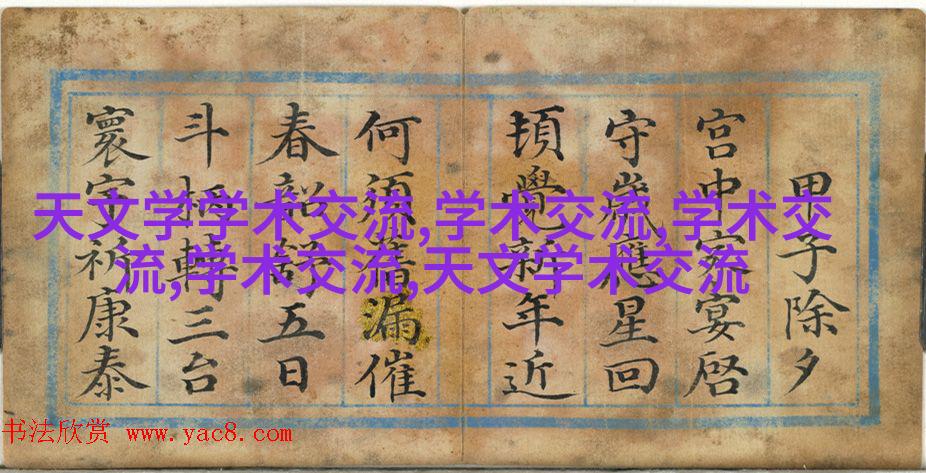 甲子除夕
宫中家宴啓
守歲應星回
頓覺新年近
何須漏催
春韶五日
斗柄轉三台
寰宇祈康泰
天文学学术交流,学术交流,学术交
流,学术交流,天文学术交流
书法欣赏 www.yac8.com